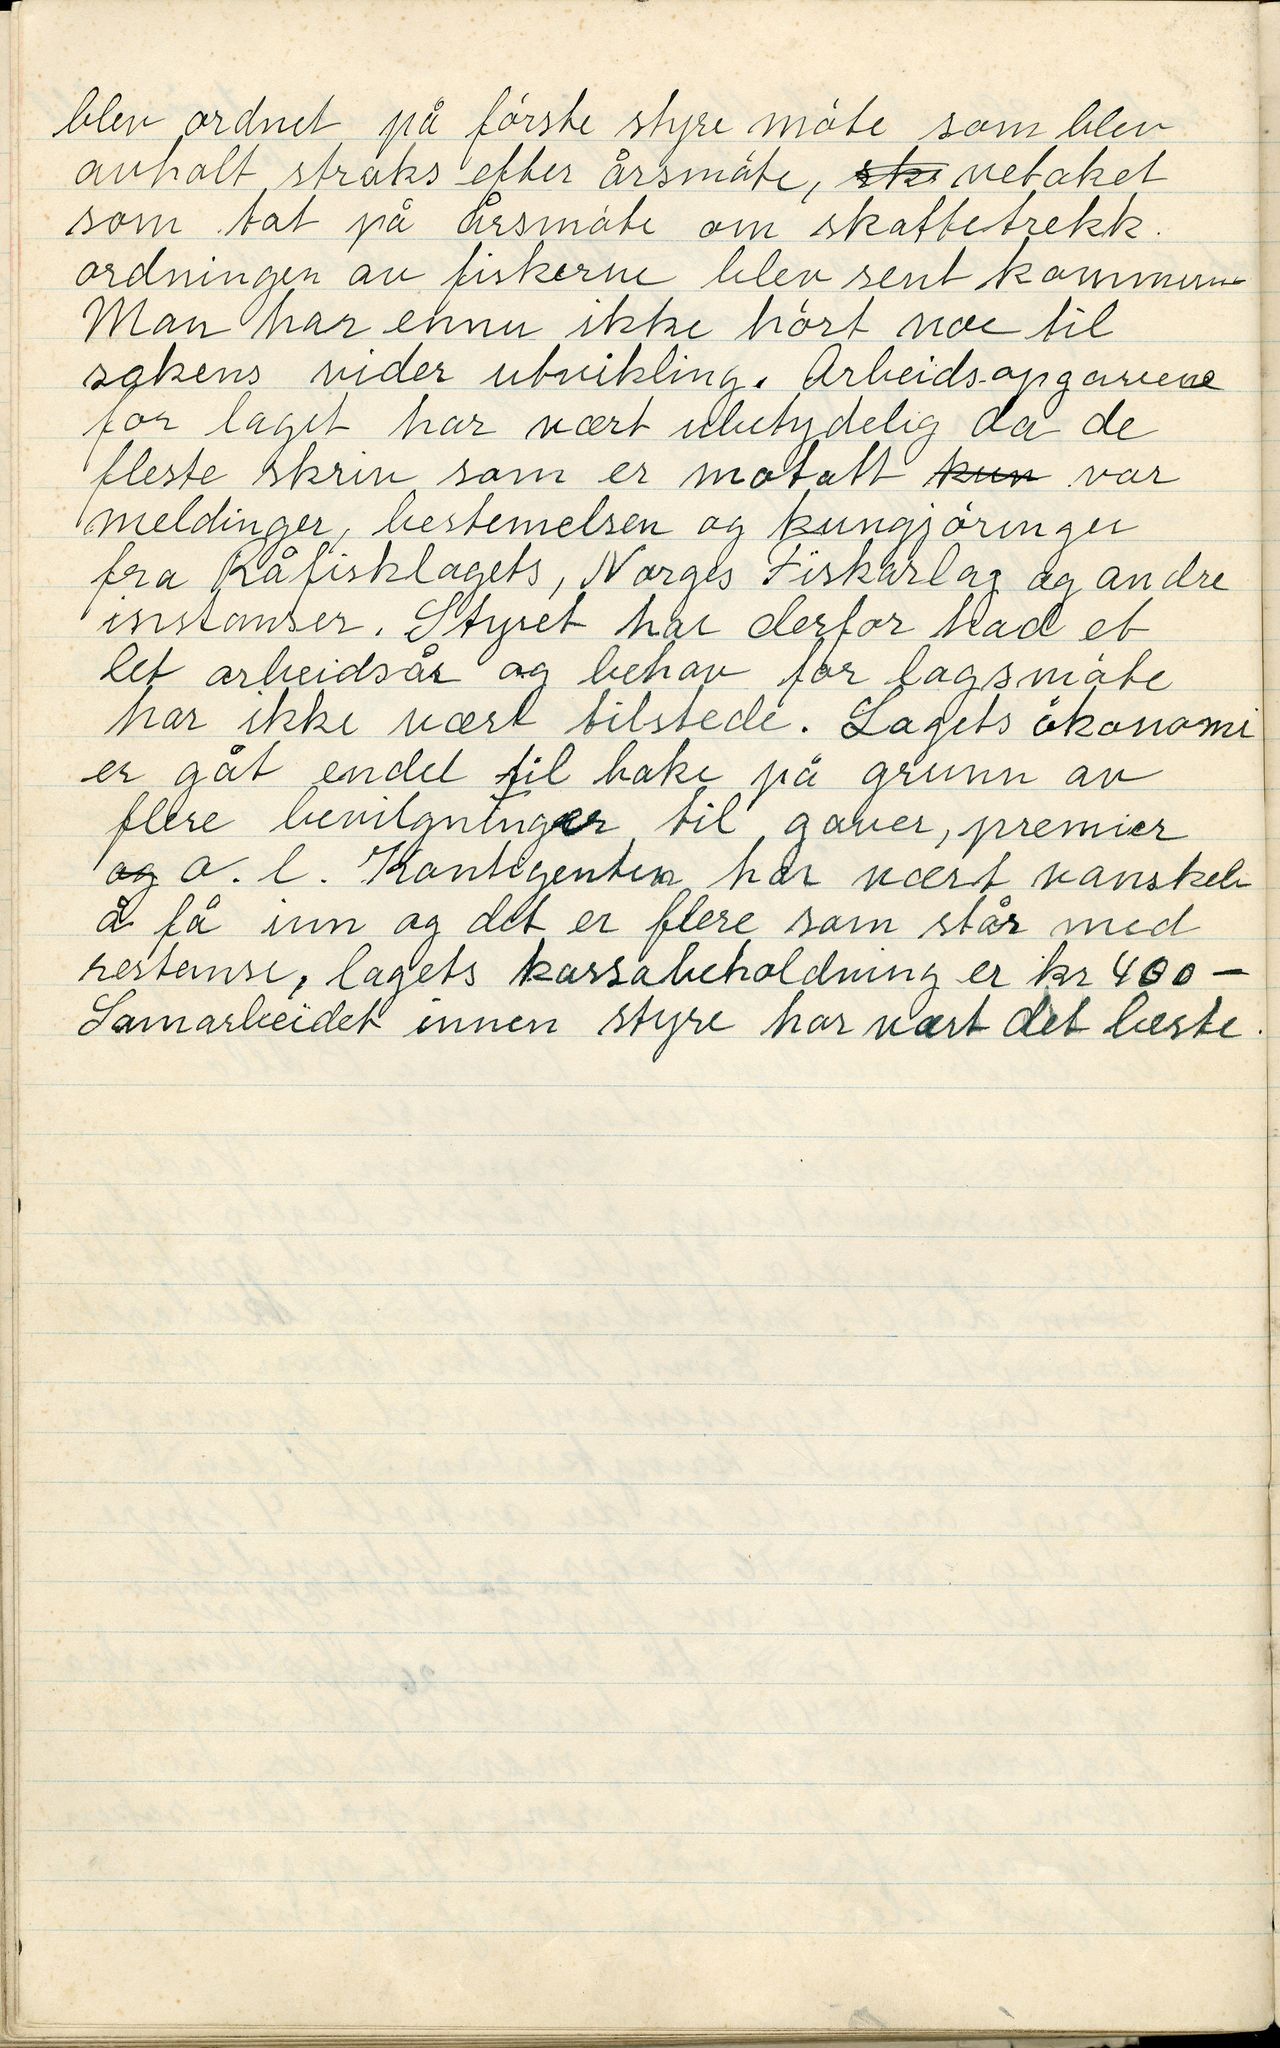 blev ordnet på förste styre möte som blev
avholt straks efter årsmöte, ske vetaket
som tat på årsmöte om skattetrekk.
ordningen av fiskerne blev sent kommune
Man har ennu ikke hört noe til
sakens vider utvikling. Arbeidsopgavene
for laget har vært ubetydelig da de
fleste skriv som er motatt kun var
meldinger, bestemelsen og kungjöringer
fra Råfisklagets, Norges Fiskarlag og andre
instanser. Styret har derfor had et
let arbeidsår og behov for lagsmöte
har ikke vært tilstede. Lagets ökonomi
er gåt endel til bake på grunn av
flere bevilgninger til gaver, premier
og o. l. Kontigenten har vært vanskeli
å få inn og det er flere som står med
restanse, lagets kassabeholdning er kr 400 —
Samarbeidet innen styre har vært det beste.